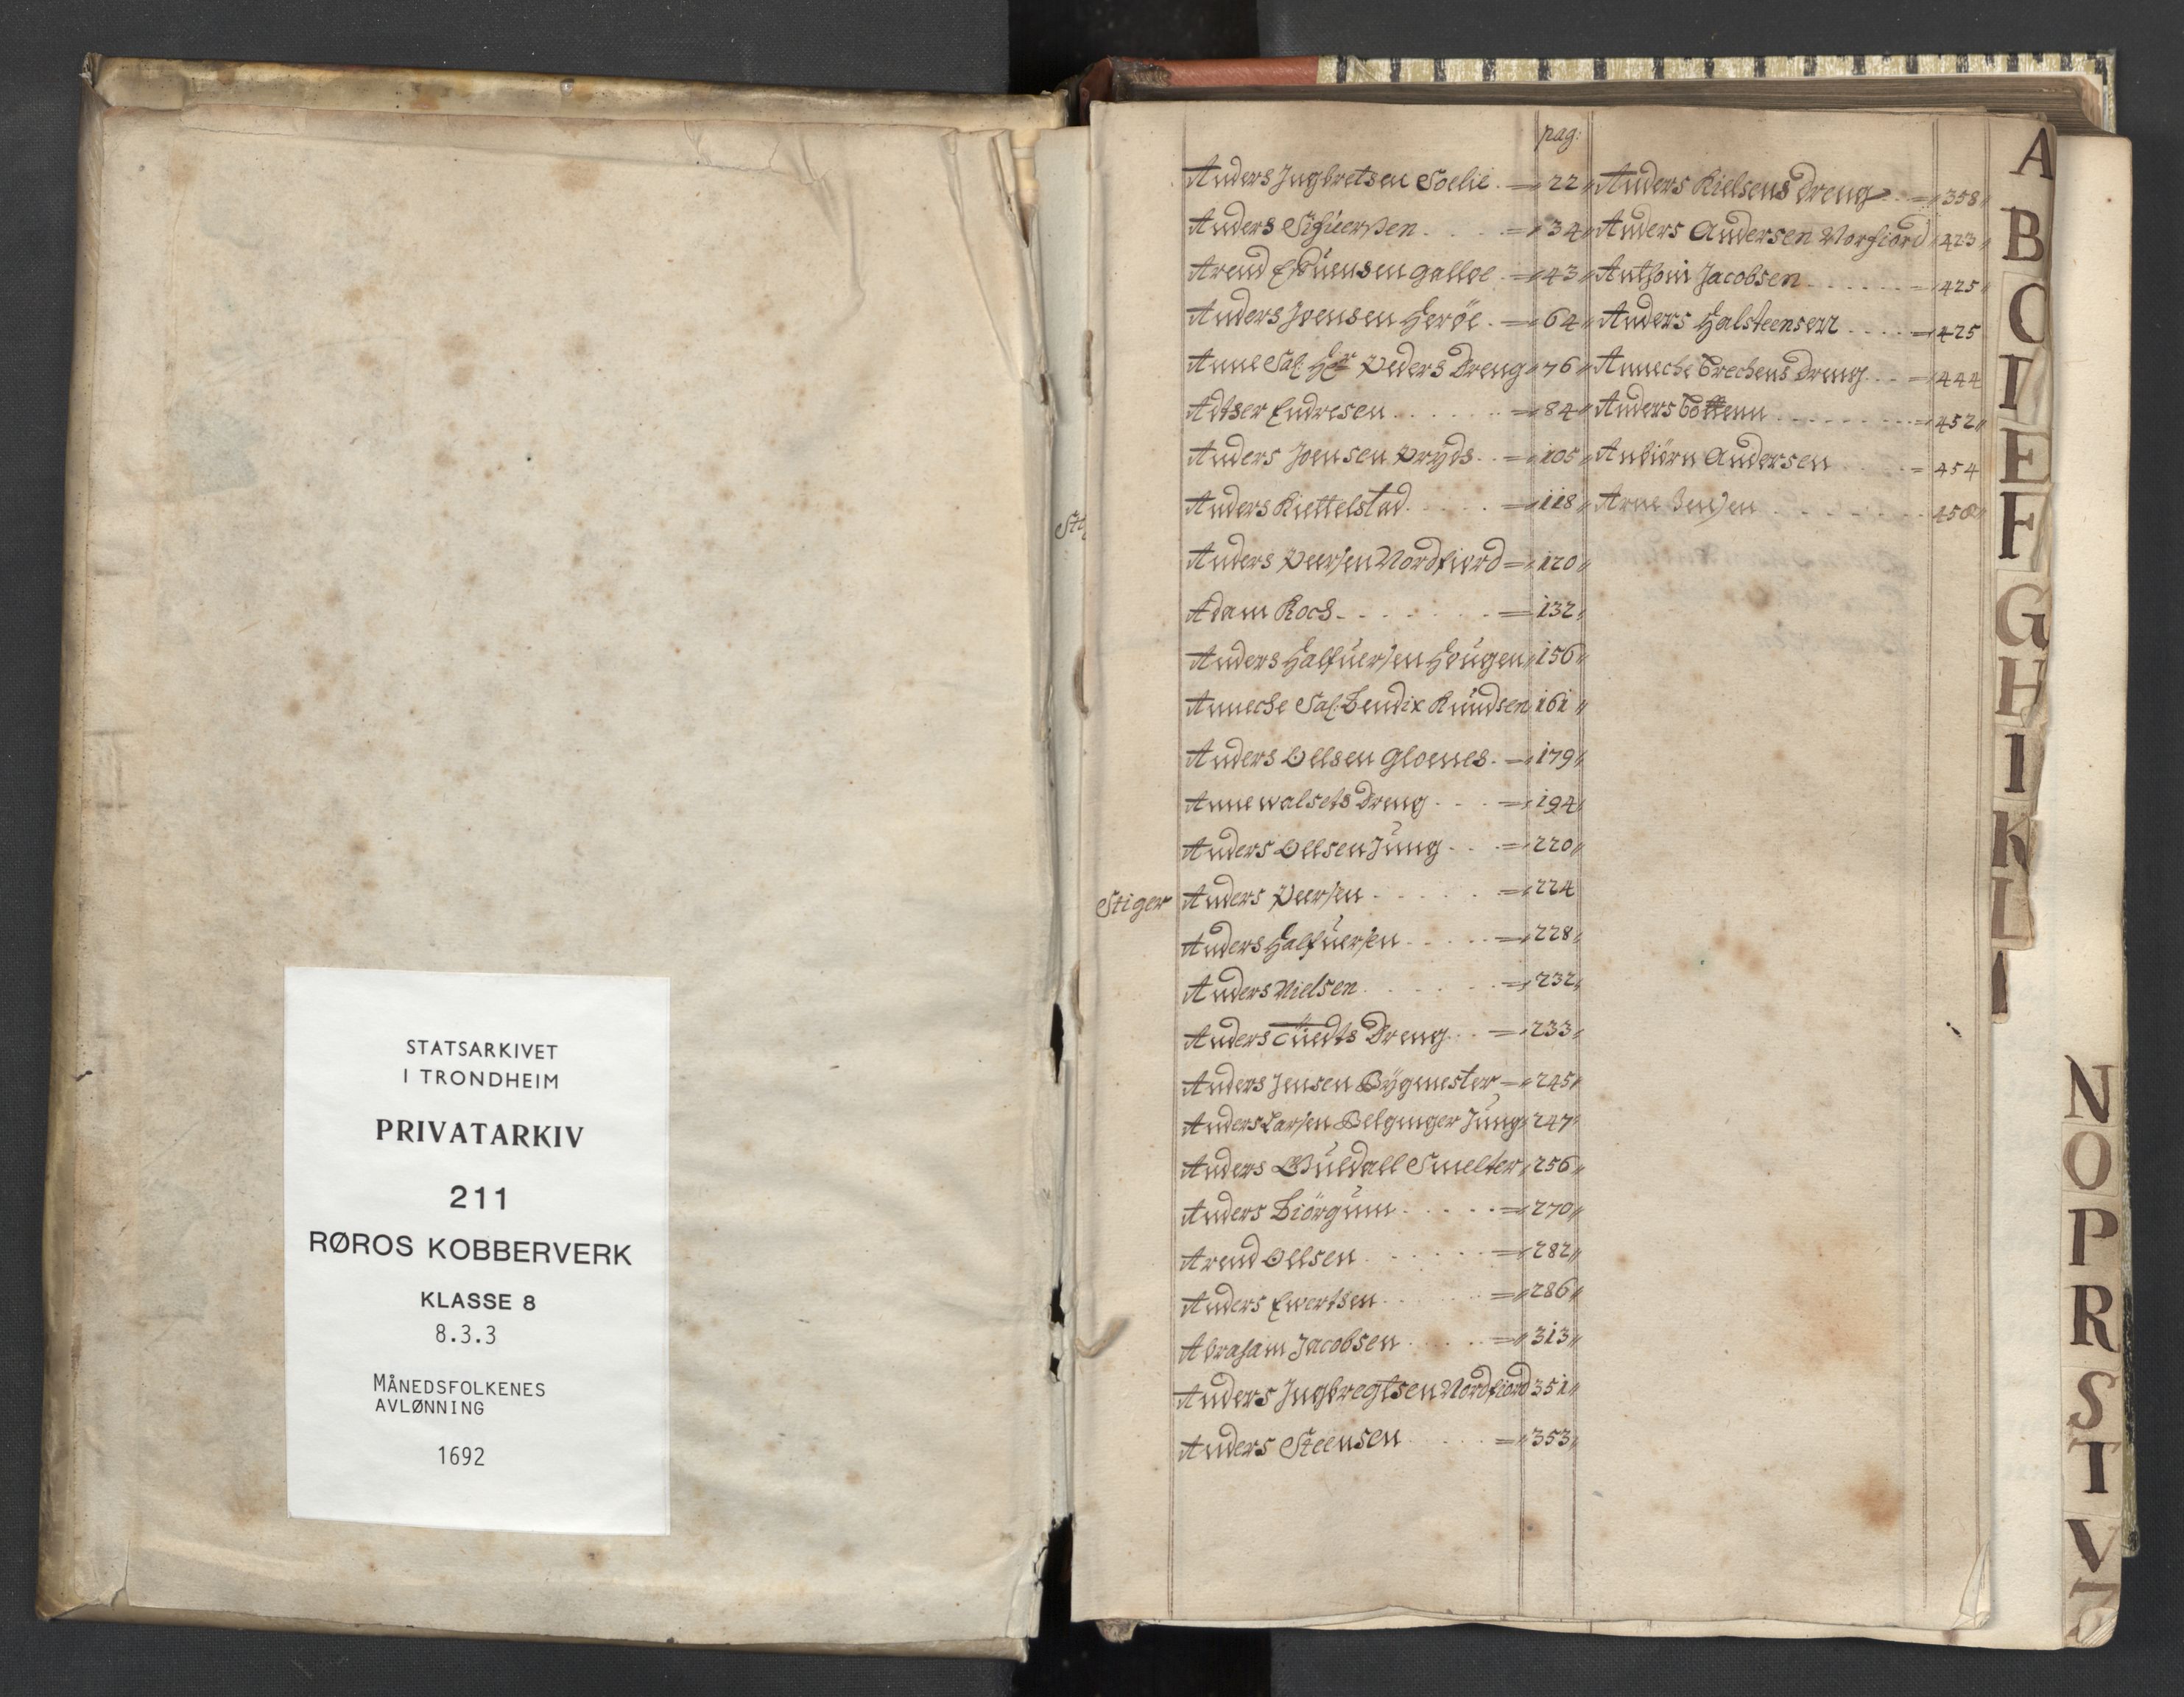 STATSARKIVET
I TRONDHEIM
PRIVATARKIV
211
RØROS KOBBERVERK
KLASSE 8
8.3.3
MÅNEDSFOLKENES
AVLØNNING
1692
pag:
Anders Ingbretsen Soelie 22
Anders Sifuersen 34
Arend galloe 43
Anders Joensen Herøe 64
Anne Sal: Her Peders Dreng 76
Adtser Endresen 84
Anders Joensen Pryds 105
Anders Kiettelstad 118
Anders Peersen Nordfiord 120
Adam Koch 132
Anders Halfuersen Hougen 156
Anneche Sal: Bendix Knudsen 161
Anders Ollsen Gloenes 179
Anne walsets Dreng 194
Anders Ollsen Jung 220
Stiger Anders Peersen 224
Anders Halfuersen 228
Anders Nielsen 232
Anders Tuedts Dreng 233
Anders Jensen Bygmester 245
Anders Larsen Belgmger Jung 247
Anders Guldall Smelter 256
Anders Biörgum 270
Arend Ollsen 282
Anders Ewertsen 286
Abraham Jacobsen 313
Anders Ingbregtsen Nordfiord 351
Anders Steensen 353
Anders Kielsens Dreng 358
Anders Andersen Norfiord 423
Anthoni Jacobsen 425
Anders Halsteensen 425
Anneche Brechens Dreng 444
Anders 452
Anbiörn Andersen 454
Arne 458
A
B
C
D
E
F
G
H
I
K
L
N
O
P
R
S
T
V